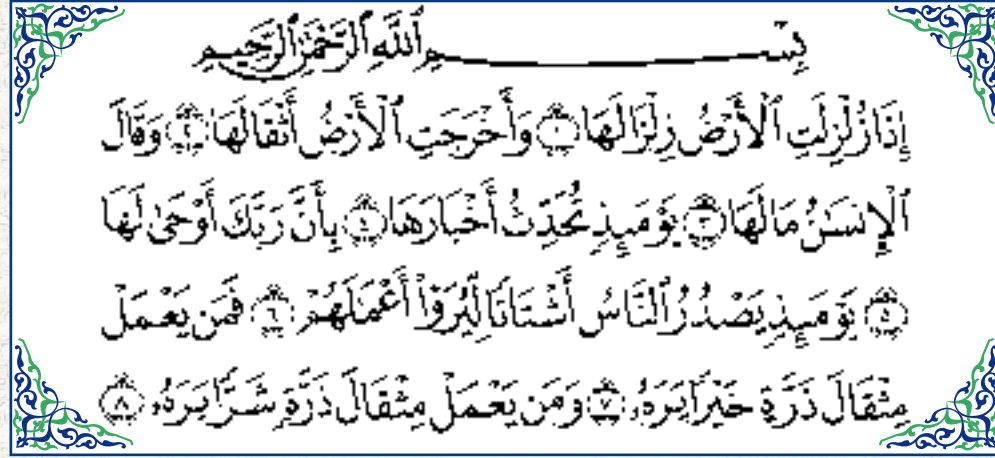 بِسْمِ ٱللَّهِ ٱلرَّحْمَٰنِ ٱلرَّحِيمِ
إِذَا زُلْزِلَتِ ٱلْأَرْضُ زِلْزَالَهَا ١ وَأَخْرَجَتِ ٱلْأَرْضُ أَثْقَالَهَا ٢ وَقَالَ
ٱلْإِنسَٰنُ مَا لَهَا ٣ يَوْمَئِذٍ تُحَدِّثُ أَخْبَارَهَا ٤ بِأَنَّ رَبَّكَ أَوْحَىٰ لَهَا
٥ يَوْمَئِذٍ يَصْدُرُ ٱلنَّاسُ أَشْتَاتًا لِّيُرَوْا۟ أَعْمَٰلَهُمْ ٦ فَمَن يَعْمَلْ
مِثْقَالَ ذَرَّةٍ خَيْرًا يَرَهُۥ ٧ وَمَن يَعْمَلْ مِثْقَالَ ذَرَّةٍ شَرًّا يَرَهُۥ ٨